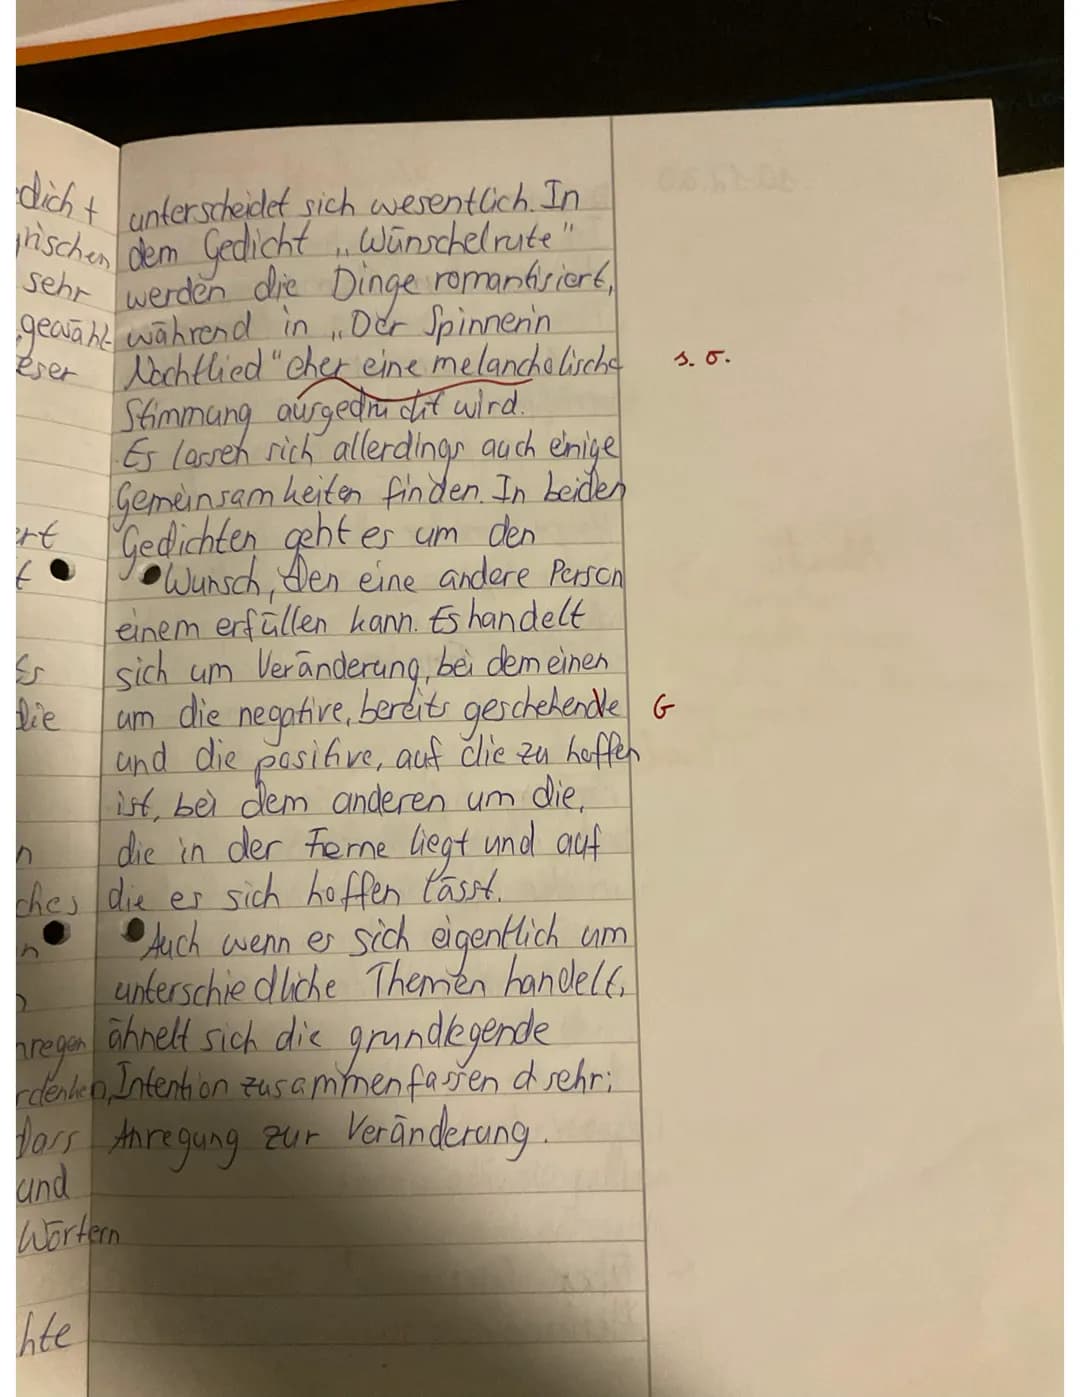 unterscheidet sich wesentlich. In
dem Gedicht „Wünschelrute"
werden die Dinge romantisiert,
während in „Der Spinnerin
Nachtlied" eher eine melancholische s. o.
Stimmung ausgedrückt wird.
Es lassen sich allerdings auch einige
Gemeinsamkeiten finden. In beiden
Gedichten geht es um den
Wunsch, den eine andere Person
einem erfüllen kann. Es handelt
sich um Veränderung, bei dem einen
um die negative, bereits geschehende G
und die positive, auf die zu hoffen
ist, bei dem anderen um die,
die in der Ferne liegt und auf
die es sich hoffen lässt.
Auch wenn es sich eigentlich um
unterschiedliche Themen handelt,
ähnelt sich die grundlegende
Intention zusammenfassend sehr:
Anregung zur Veränderung.
dicht
rischen
sehr
gewähl-
eser
ert
t
Es
die
n
ches
n
nregen
rdenken,
dass
und
Wörtern
hte